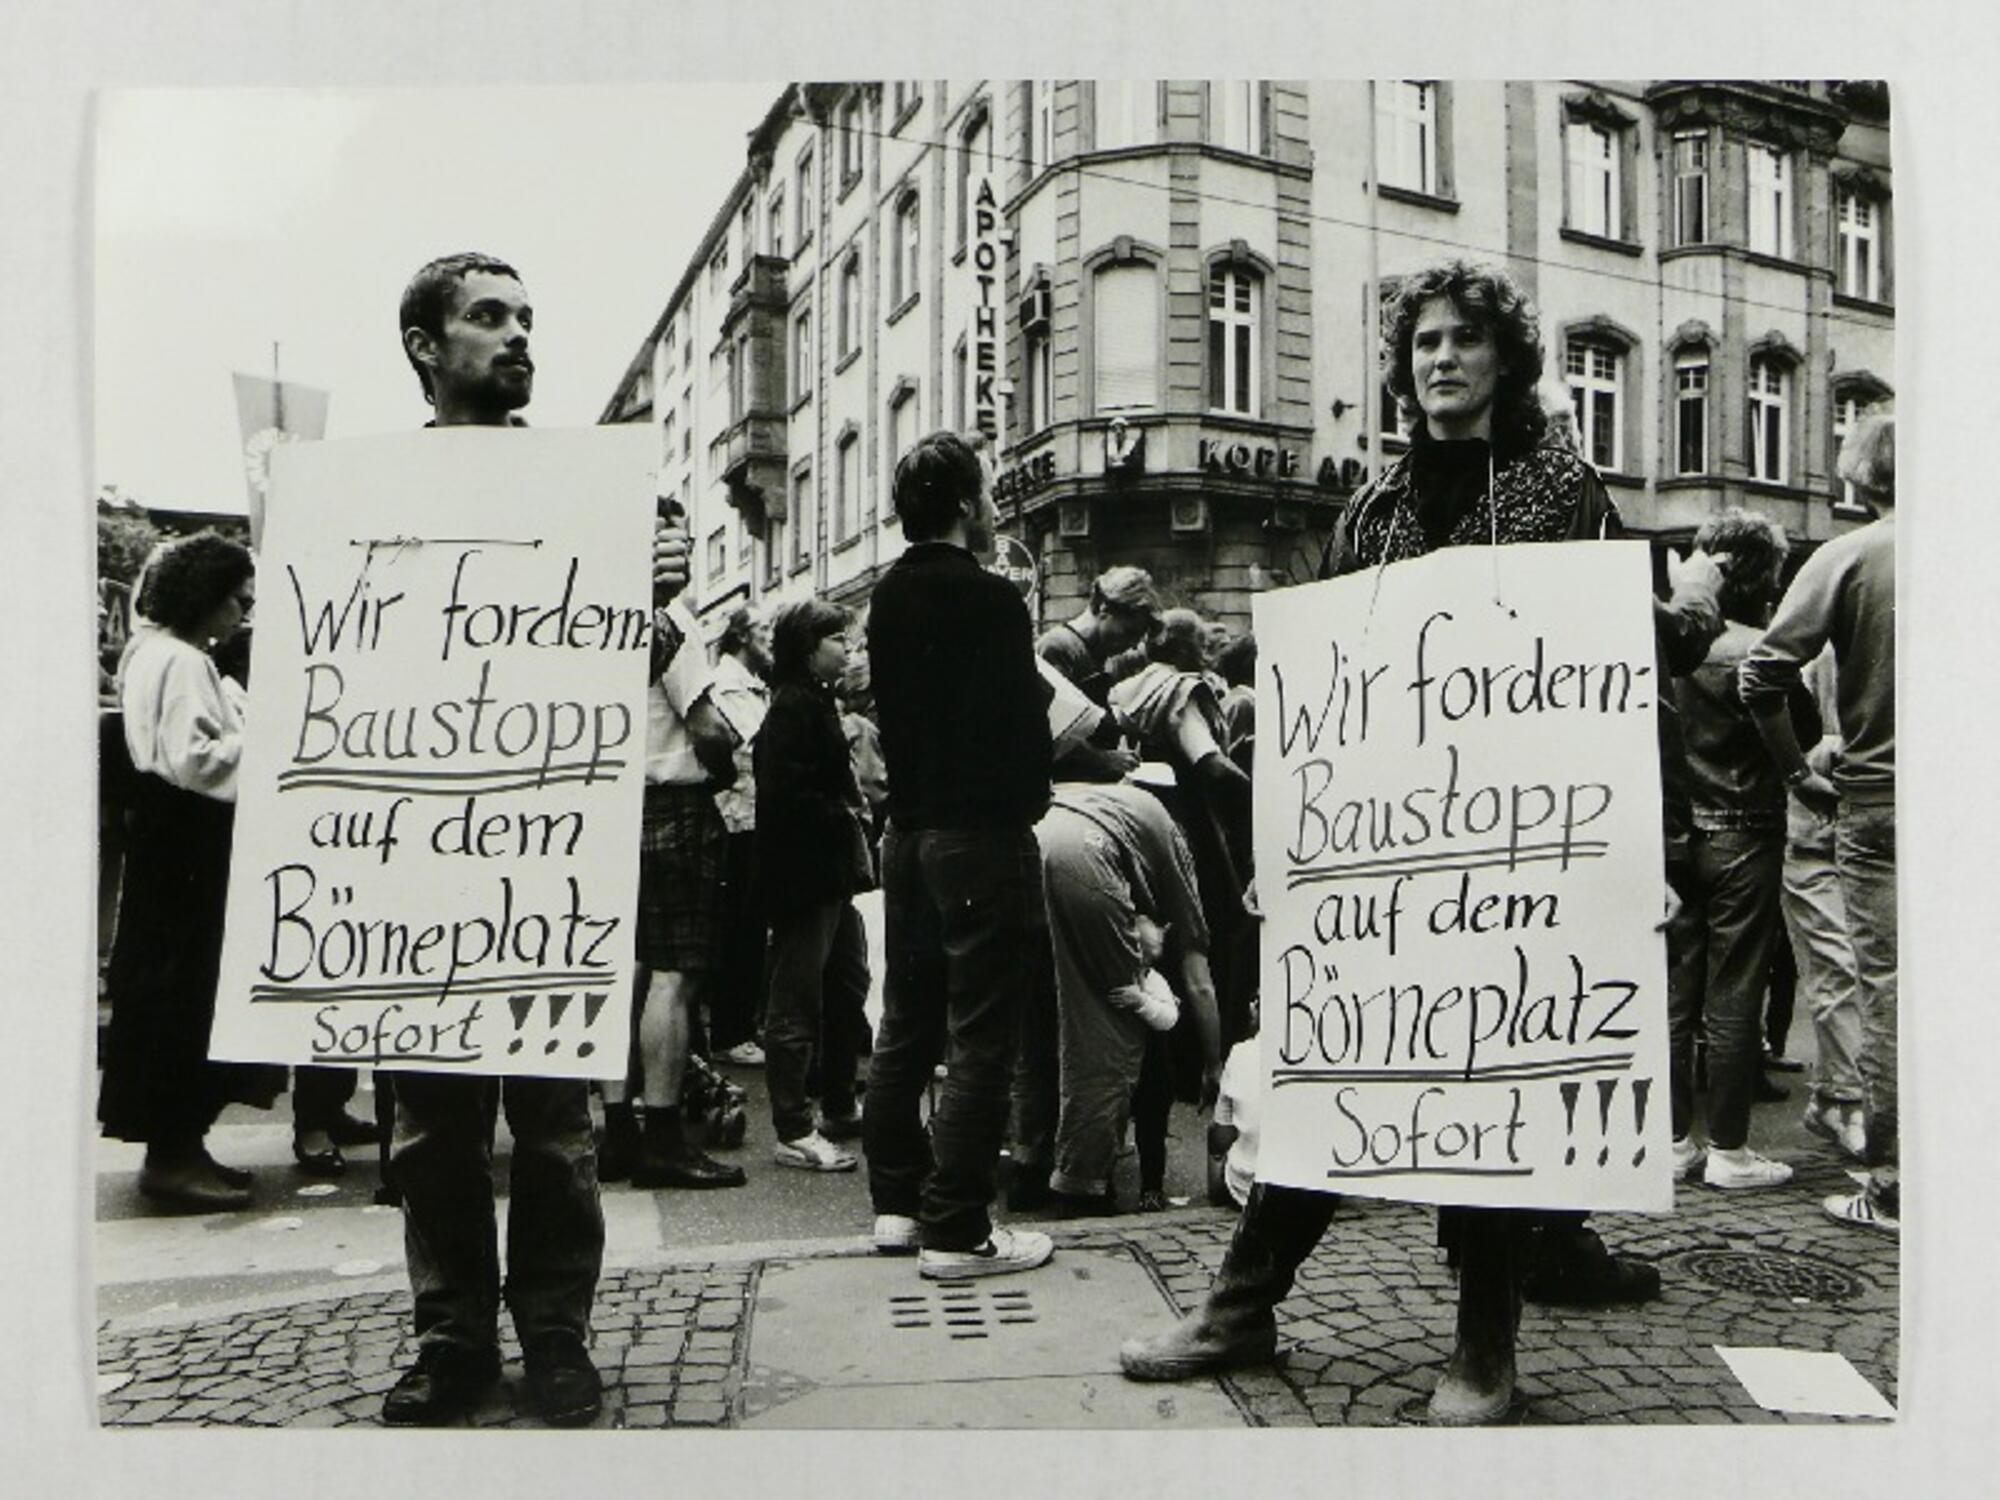 APOTHEKE
KOPF AP
BAYER
BAYER
Wir fordern:
Baustopp
auf dem
Börneplatz
Sofort !!!
Wir fordern:
Baustopp
auf dem
Börneplatz
Sofort !!!